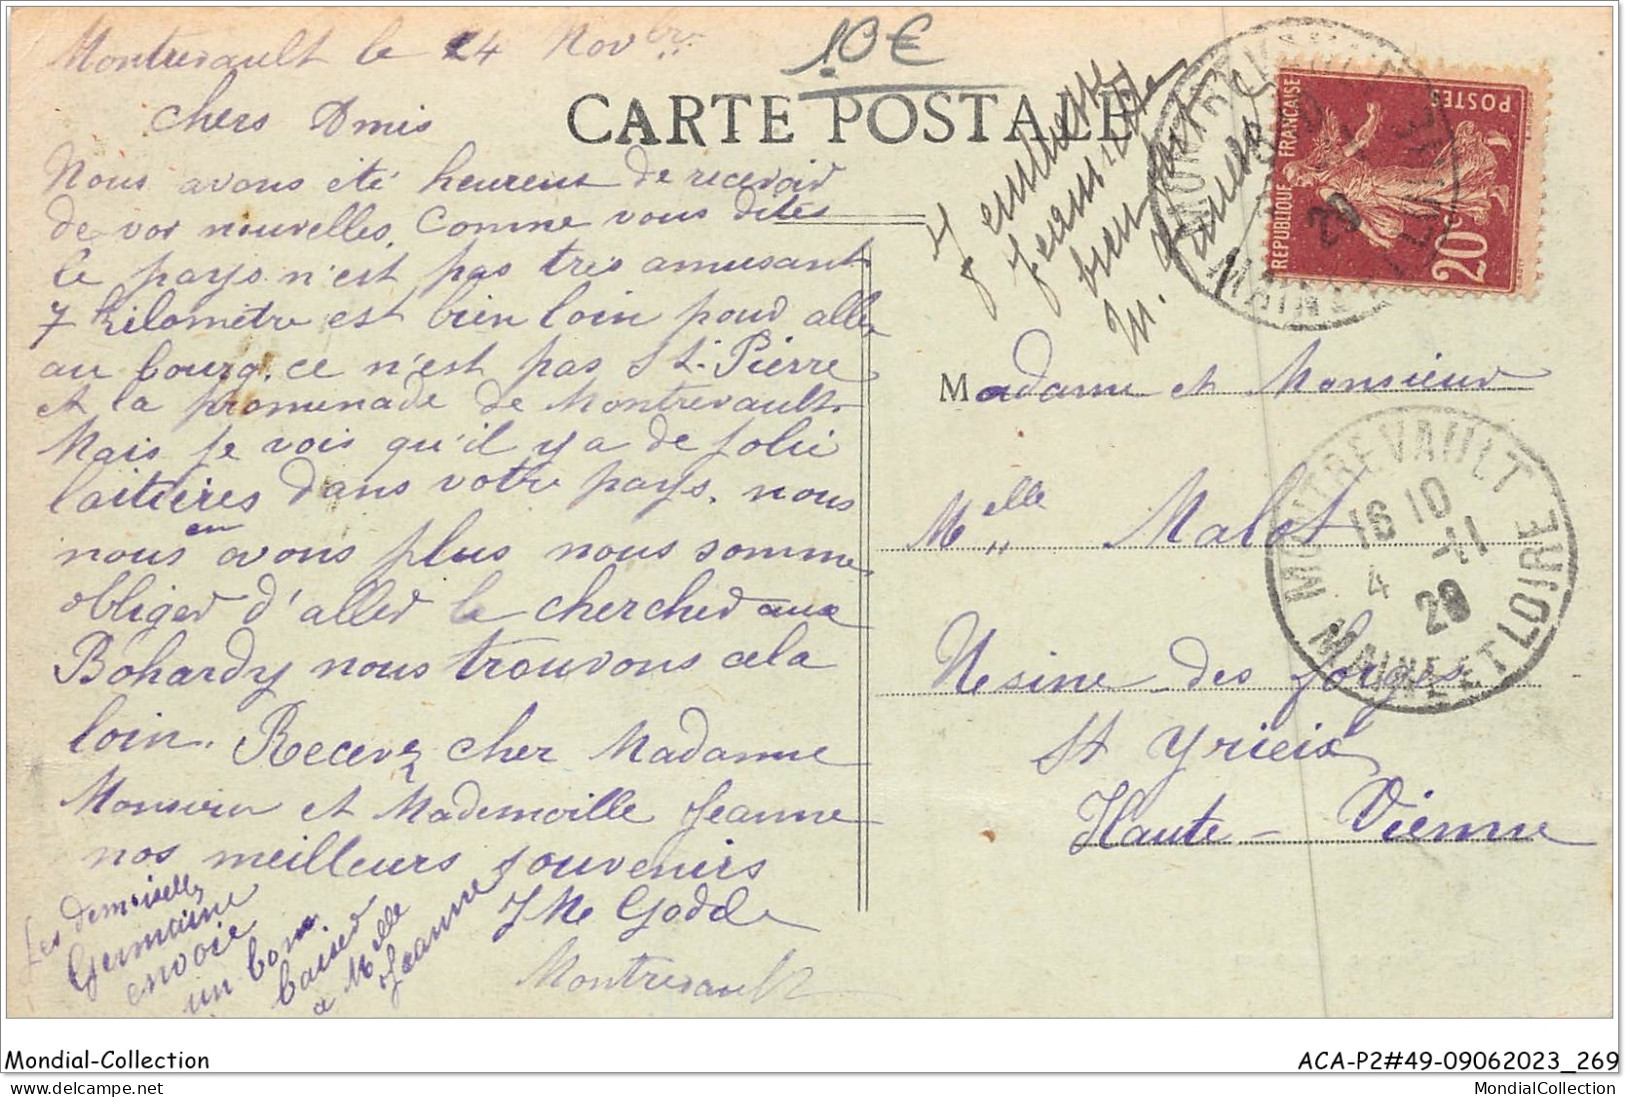 Montrevault le 4 Novbre
10€
CARTE POSTALE
chers Amis
Nous avons été heureux de recevoir
de vos nouvelles. Comme vous dites
le pays n'est pas tres amusant
7 kilomètre est bien loin pour aller
au bourg. ce n'est pas St. Pierre
et la promenade de Montrevault.
Mais je vois qu'il y a de jolie
laitières dans votre pays. nous
nous en avons plus nous somme
obliger d'aller le chercher aux
Bohardy nous trouvons cela
loin. Recevez cher Madame
Monsieur et Mademoiselle Jeanne
nos meilleurs souvenirs
J Me Godde
Montrevault
Les demoiselles
Germaine
envoie
un bon
baiser
a Melle
Jeanne
J'embrasse
Jeannette
bien fort
M.
REPUBLIQUE FRANÇAISE
POSTES
20c
MONTREVAULT
MAINE ET LOIRE
Madame et Monsieur
Melle Malet
Usine des forges
St Yrieix
Haute-Vienne
MONTREVAULT
16 10
4 -11
29
MAINE ET LOIRE
Mondial-Collection
ACA-P2#49-09062023_269
MondialCollection